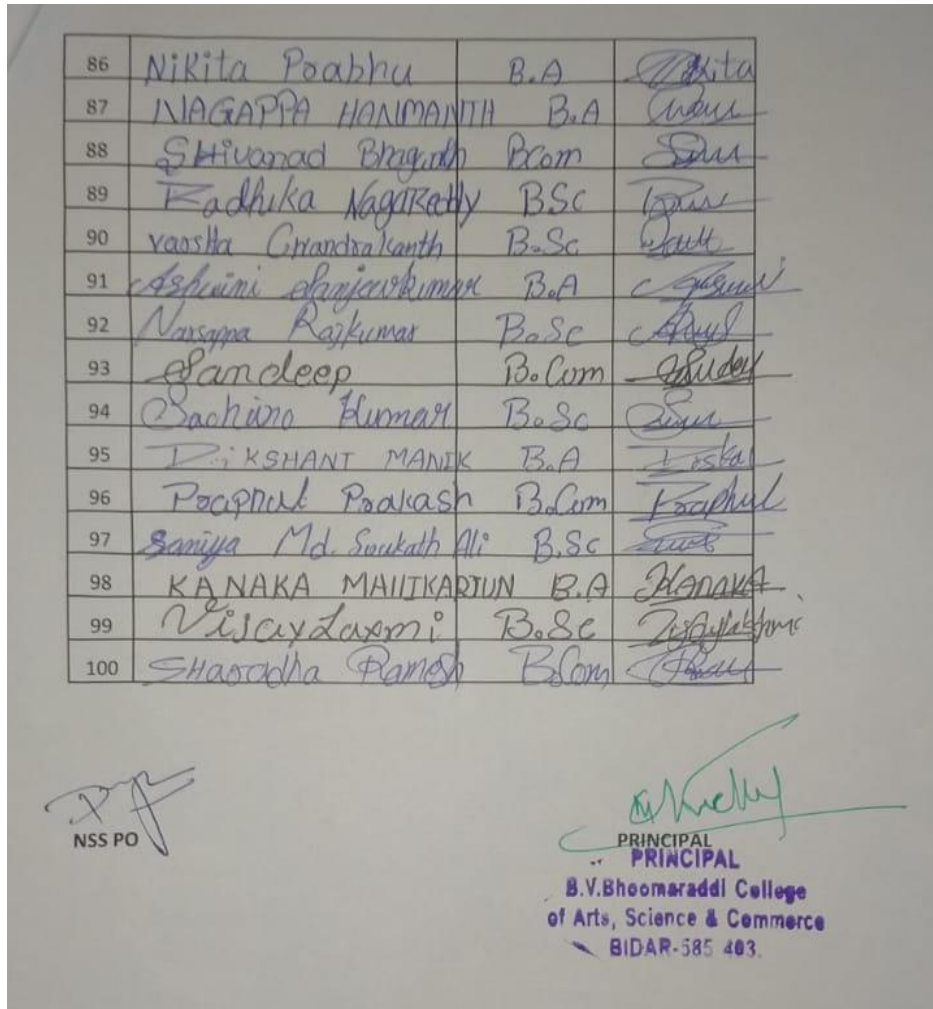 86 Nikita Prabhu B.A Nikita
87 NAGAPPA HANMANTH B.A
88 SHivanad Bhagwath Bcom
89 Radhika NagaReddy BSc
90 varsHa Chandrakanth B.Sc
91 Ashwini Sanjevkumar B.A
92 Narsappa Rajkumar B.Sc
93 Sandeep B.Com
94 Sachino Kumar B.Sc
95 DiKSHANT MANIK B.A
96 Praphul Prakash B.Com Praphul
97 Saniya Md. Soukath Ali B.Sc
98 KANAKA MALLIKARJUN B.A KANAKA
99 VijayLaxmi B.Sc Vijaylakshmi
100 SHaradha Ramesh BCom
NSS PO
PRINCIPAL
PRINCIPAL
B.V.Bhoomaraddi College
of Arts, Science & Commerce
BIDAR-585 403.